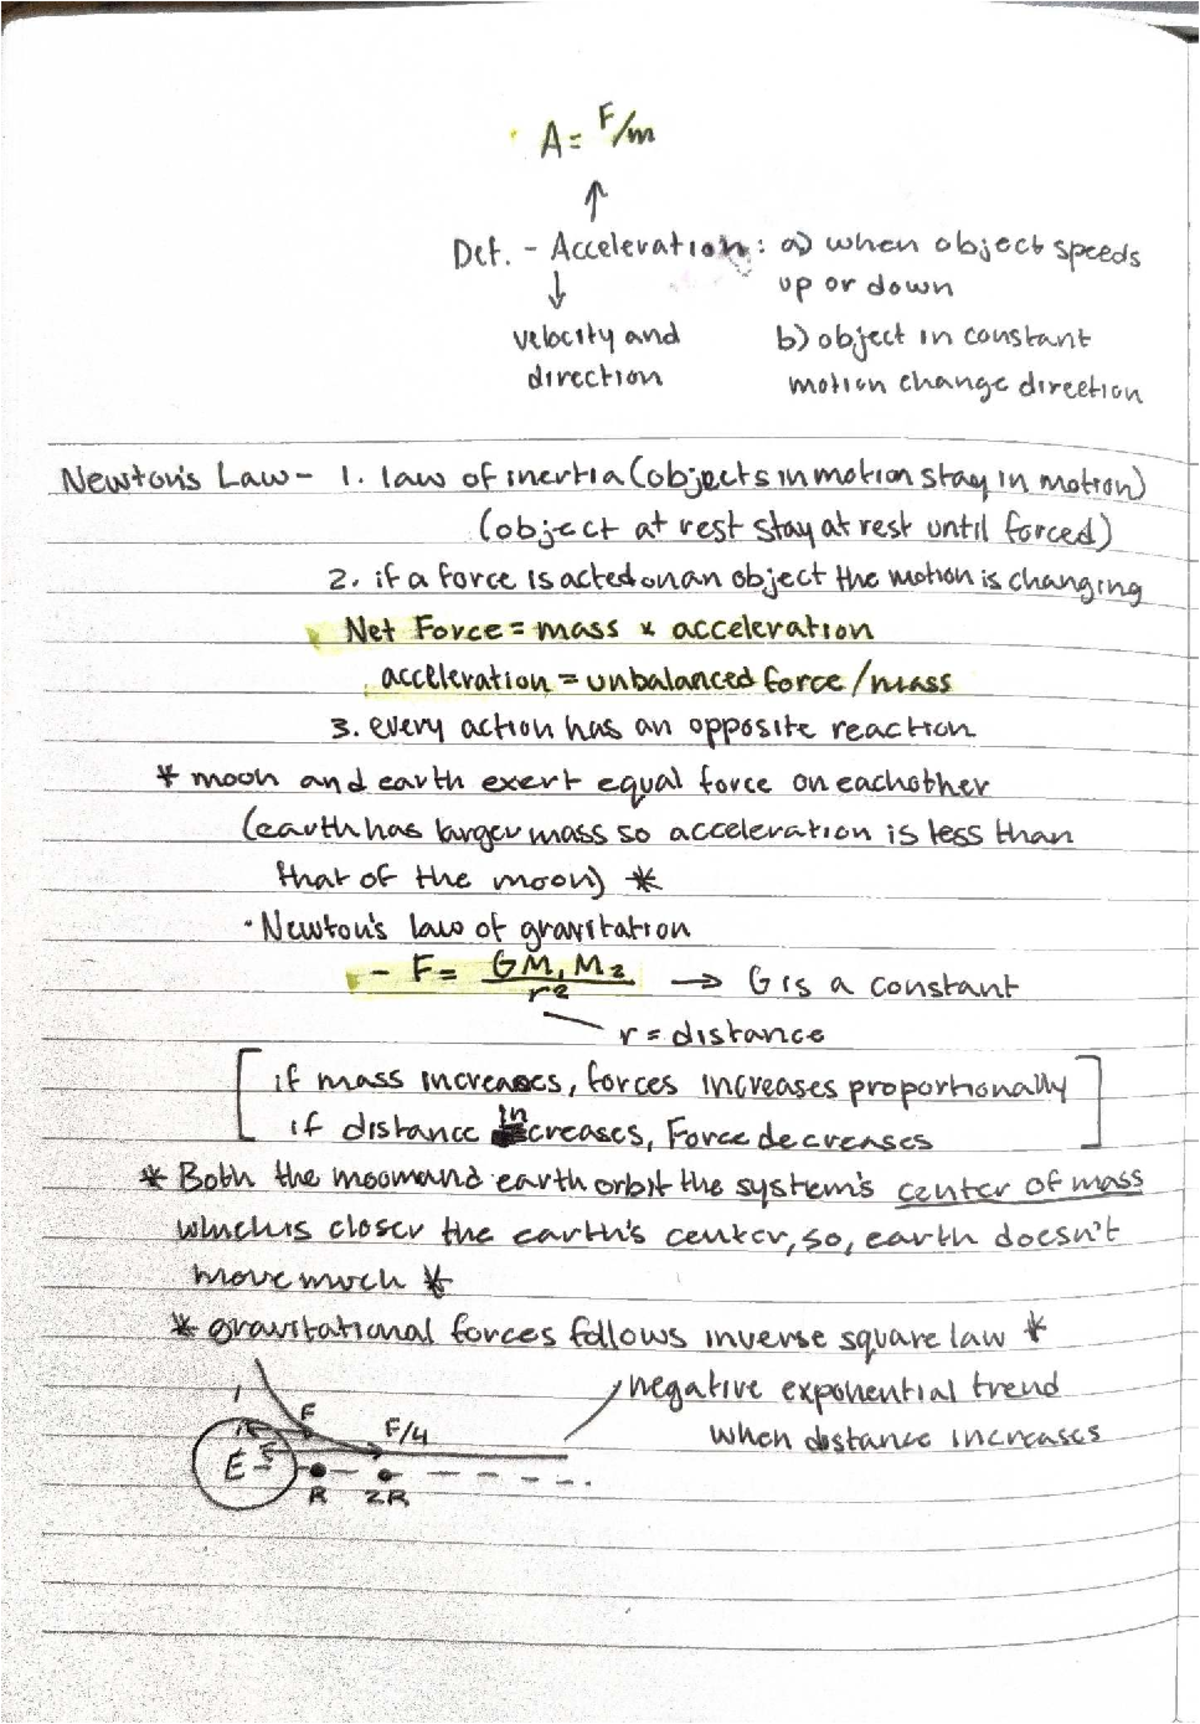 A = F/m
Def. - Acceleration: a) when object speeds
up or down
velocity and
direction
b) object in constant
motion change direction
Newton's Law - 1. law of inertia (objects in motion stay in motion)
(object at rest stay at rest until forced)
2. if a force is acted on an object the motion is changing
Net Force = mass x acceleration
acceleration = unbalanced force/mass
3. every action has an opposite reaction
* moon and earth exert equal force on eachother
(earth has larger mass so acceleration is less than
that of the moon) *
· Newton's law of gravitation
- F = GM₁M₂/r² → G is a constant
r = distance
[if mass increases, forces increases proportionally
if distance increases, Force decreases]
* Both the moon and earth orbit the system's center of mass
which is closer the earth's center, so, earth doesn't
move much *
* gravitational forces follows inverse square law *
negative exponential trend
when distance increases
F
F/4
E
R 2R